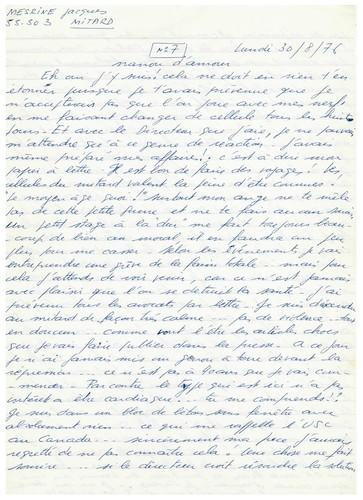 MESRINE Jacques
55-50 3 MITARD
N° 7 Lundi 30/8/76
nanou d'amour
Eh oui j'y suis! cela ne doit en rien t'en
étonner puisque je t'avais prévenue que je
n'accepterais pas que l'on joue avec mes nerfs
en me faisant changer de cellule tous les huit
jours. Et avec le Directeur que j'ai, je ne pouvais
m'attendre qu'à ce genre de réaction. J'avais
même préparé mes affaires, c'est à dire mon
papier à lettre. Il est bon de faire des voyages. les
cellules du mitard valent la peine d'être connues.
Le moyen âge quoi!! Surtout mon ange ne te mêle
pas de cette petite guerre et ne te fais aucun souci
un petit stage à la dure me fait toujours beau-
coup de bien au moral et il en faudra un peu
plus pour me casser. Selon les évènements je vais
entreprendre une grève de la faim totale mais pour
cela j'attends de voir venir car ce n'est jamais
avec plaisir que l'on se détruit la santé. J'ai
prévenu tous les avocats par lettre. Je suis descendu
au mitard de façon très calme pas de violence tout
en douceur comme vont l'être les articles chocs
que je vais faire publier dans la presse. A ce jour
je n'ai jamais mis un genou à terre devant la
répression ce n'est pas à 40 ans que je vais com-
mencer. Par contre le type qui est ici n'a pas
intérêt à être cardiaque tu me comprends!?
Je suis dans un bloc de béton sans fenêtre avec
absolument rien ce qui me rappelle l'USC
au Canada sincèrement ma puce j'aurais
regretté de ne pas connaître cela. Une chose me fait
sourire si le directeur croit résoudre la situation